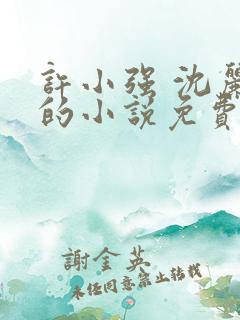 許小強 沈麗
的小說免費
謝金英
未經同意禁止轉載